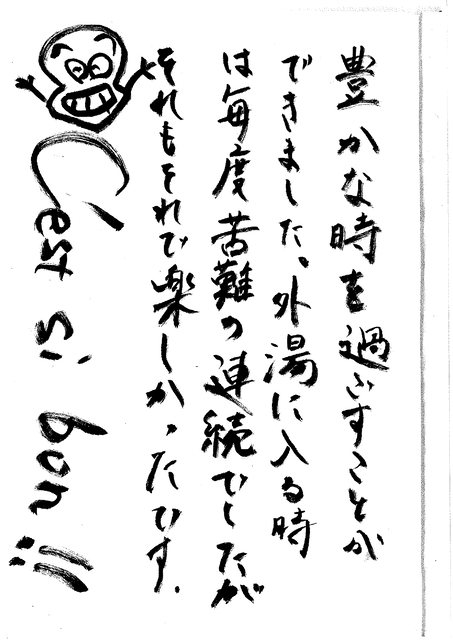 豊かな時を過ごすことが
できました。外湯に入る時
は毎度苦難の連続でしたが
それもそれで楽しかったです.
C'est si bon!!